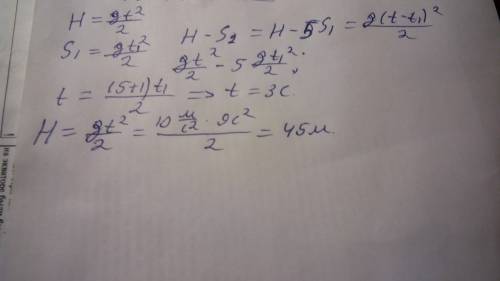 H = gt²/2
S₁ = gt₁²/2
H - S₂ = H - 5S₁ = g(t-t₁)²/2
gt²/2 - 5 gt₁²/2 ;
t = (5+1)t₁/2 => t = 3с.
H = gt²/2 = 10 м/с² · 9с²/2 = 45м.